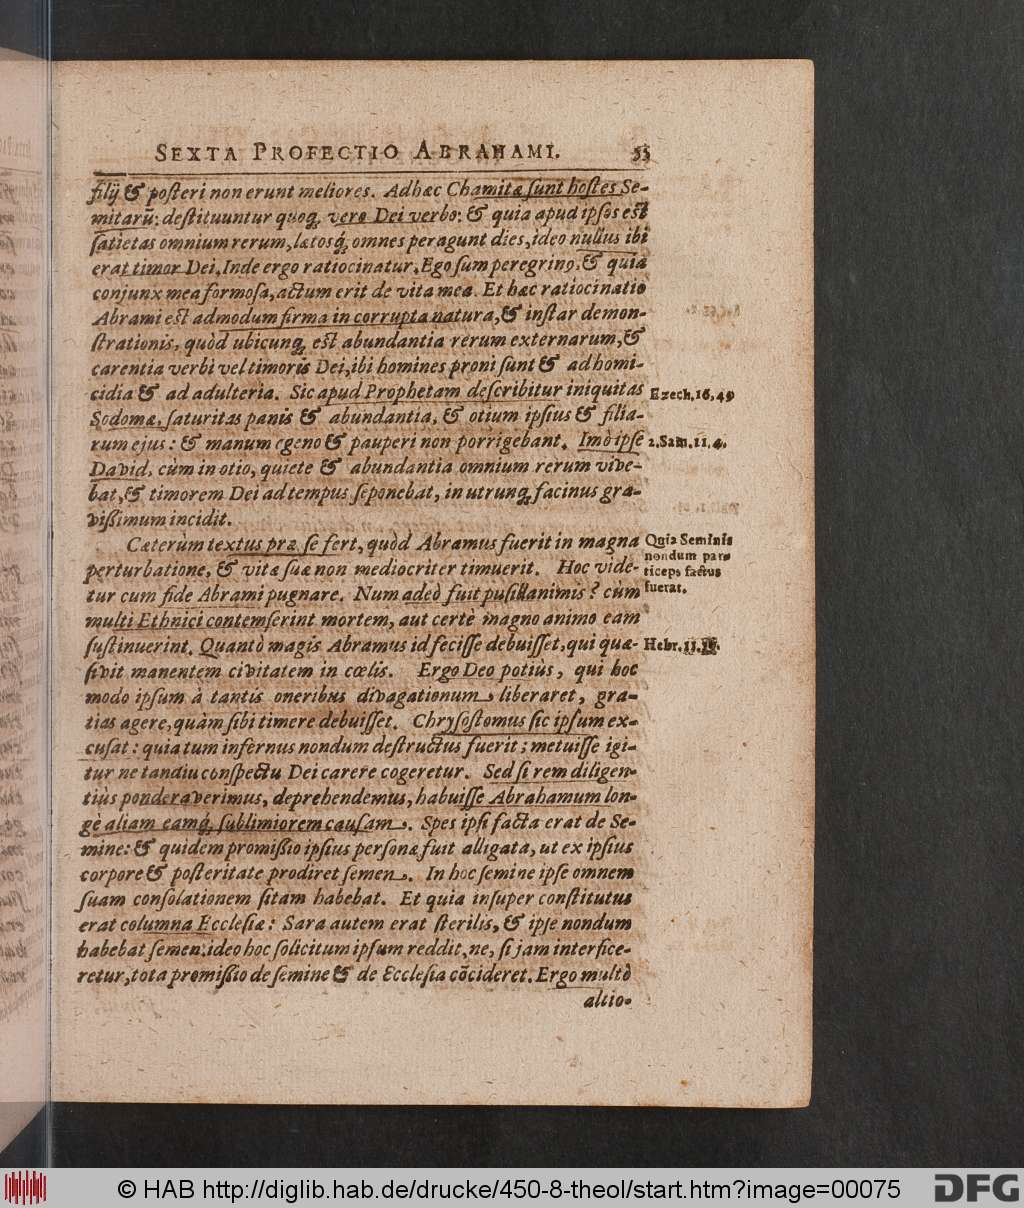 SEXTA PROFECTIO ABRAHAMI. 53
filij & posteri non erunt meliores. Ad hæc Chamitæ sunt hostes Se-
mitarũ: destituuntur quoq; vero Dei verbo: & quia apud ipsos est
satietas omnium rerum, lætosq́; omnes peragunt dies, ideo nullus ibi
erat timor Dei. Inde ergo ratiocinatur. Ego sum peregrinꝰ. & quia
conjunx mea formosa, actum erit de vita mea. Et hæc ratiocinatio
Abrami est admodum firma in corrupta natura, & instar demon-
strationis, quòd ubicunq; est abundantia rerum externarum, &
carentia verbi vel timoris Dei, ibi homines proni sunt & ad homi-
cidia & ad adulteria. Sic apud Prophetam describitur iniquitas
Ezech. 16, 49
Sodomæ, saturitas panis & abundantia, & otium ipsius & filia-
rum ejus: & manum egeno & pauperi non porrigebant. Imò ipse
2. Sam. 11. 4.
David, cùm in otio, quiete & abundantia omnium rerum vive-
bat, & timorem Dei ad tempus seponebat, in utrunq; facinus gra-
vißimum incidit.
Cæterùm textus præ se fert, quòd Abramus fuerit in magna
Quia Seminis
nondum par-
ticeps factus
fuerat.
perturbatione, & vitæ suæ non mediocriter timuerit. Hoc vide-
tur cum fide Abrami pugnare. Num adeò fuit pusillanimis? cùm
multi Ethnici contemserint mortem, aut certè magno animo eam
sustinuerint. Quantò magis Abramus id fecisse debuisset, qui quæ-
Hebr. 11.
sivit manentem civitatem in cœlis. Ergo Deo potiùs, qui hoc
modo ipsum à tantis oneribus divagationum liberaret, gra-
tias agere, quàm sibi timere debuisset. Chrysostomus sic ipsum ex-
cusat: quia tum infernus nondum destructus fuerit; metuisse igi-
tur ne tandiu conspectu Dei carere cogeretur. Sed si rem diligen-
tiùs ponderaverimus, deprehendemus, habuisse Abrahamum lon-
gè aliam eamq́; sublimiorem causam. Spes ipsi facta erat de Se-
mine: & quidem promißio ipsius personæ fuit alligata, ut ex ipsius
corpore & posteritate prodiret semen. In hoc semine ipse omnem
suam consolationem sitam habebat. Et quia insuper constitutus
erat columna Ecclesiæ: Sara autem erat sterilis, & ipse nondum
habebat semen: ideo hoc solicitum ipsum reddit, ne, si jam interfice-
retur, tota promißio de semine & de Ecclesia cõcideret. Ergo multò
altio-
© HAB http://diglib.hab.de/drucke/450-8-theol/start.htm?image=00075
DFG